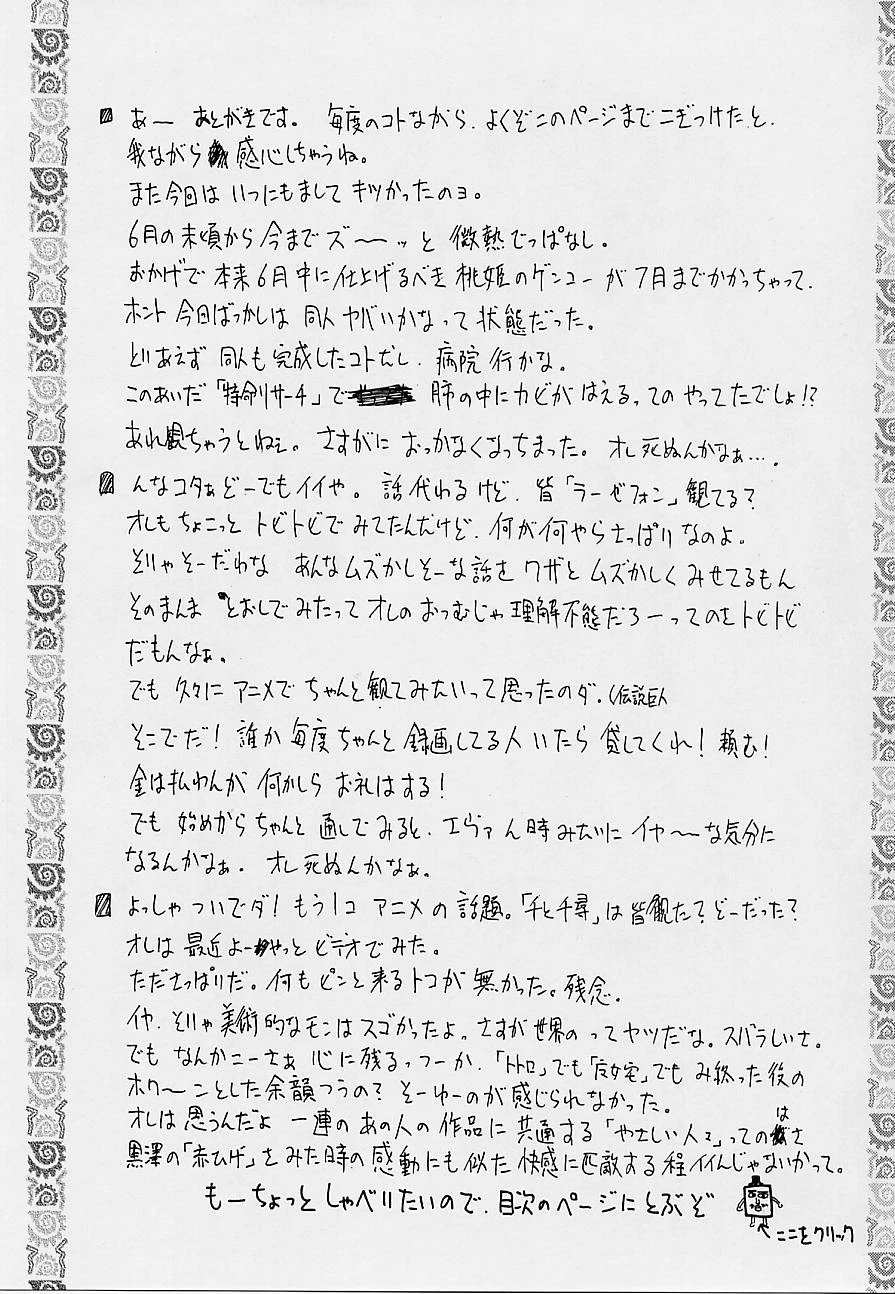 あー あとがきです。 毎度のコトながら、よくぞこのページまでこぎつけたと、
我ながら感心しちゃうね。
また今回は いつにもまして キツかったのヨ。
6月の末頃から今までズ〜〜ッと 微熱でっぱなし。
おかげで本来6月中に仕上げるべき桃姫のゲンコーが7月までかかっちゃって、
ホント今回ばっかしは 同人ヤバいかなって状態だった。
とりあえず 同人も完成したコトだし、病院行かな。
このあいだ「特命リサーチ」で 肺の中にカビがはえるってのやってたでしょ!?
あれ観ちゃうとねェ。さすがに おっかなくなっちまった。 オレ死ぬんかなぁ…．
んなコタぁどーでもイイや。 話代わるけど、皆「ラーゼフォン」観てる?
オレもちょこっと トビトビで みてたんだけど、何が何やらさっぱりなのよ。
そりゃそーだわな あんなムズかしそーな話を ワザと ムズかしく みせてるもん
そのまんま とおしでみたって オレのおつむじゃ理解不態だろーってのをトビトビ
だもんなぁ。
でも 久々に アニメで ちゃんと観てみたいって思ったのダ、(伝説巨人
そこでだ! 誰か 毎度ちゃんと録画してる人 いたら 貸してくれ! 頼む!
金は払わんが 何かしら お礼はする!
でも 始めからちゃんと 通しでみると、エヴァん時みたいに イヤ〜〜な気分に
なるんかなぁ。 オレ死ぬんかなぁ。
よっしゃ ついでダ! もう1コ アニメ の話題。「千と千尋」は皆観た? どーだった?
オレは最近よーやっと ビデオでみた。
たださっぱりだ。何もピンと来るトコが無かった。残念．
イヤ、そりゃ美術的なモンはスゴかったよ。さすが世界の ってヤツだな。スバラしいさ。
でも なんかこーさぁ 心に残るっつーか、「トトロ」でも「魔女宅」でも み終った後の
ホワ〜ンとした余韻つうの? そーゆーのが感じられなかった。
オレは思うんだよ 一連のあの人の作品に共通する「やさしい人々」ってのはさ
黒澤の「赤ひげ」をみた時の感動にも似た快感に匹敵する程イイんじゃないかって。
もーちょっと しゃべりたいので、目次のページにとぶぞ
ここをクリック